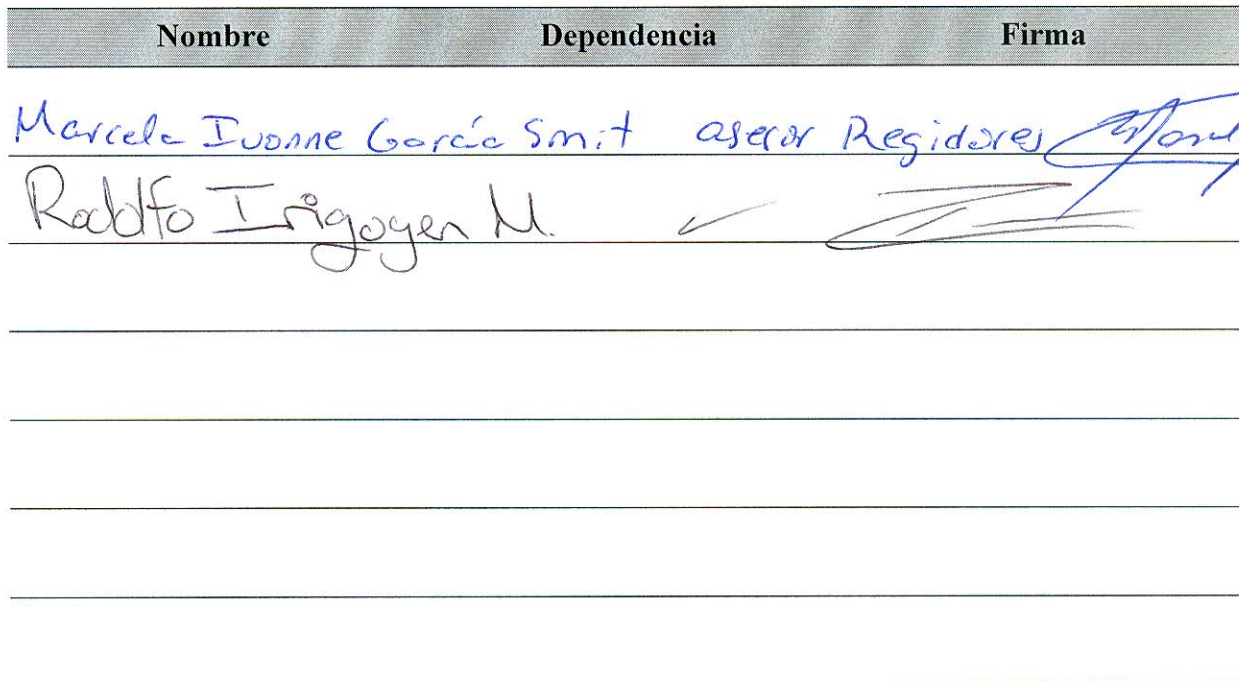 Nombre Dependencia Firma
Marcela Ivonne García Smit asesor Regidores
Rodolfo Irigoyen M.